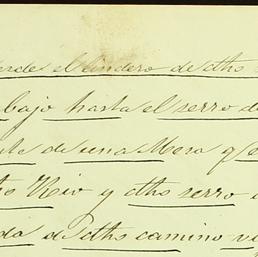 erde el lindero de dho
bajo hasta el serro d
te de una Mesa q e
ho Rio y dho serro
da de dho camino v